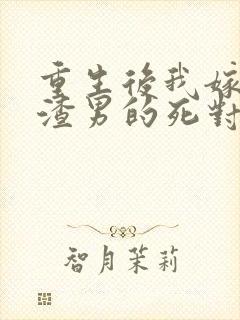 重生後我嫁
渣男的死對
智月茉莉